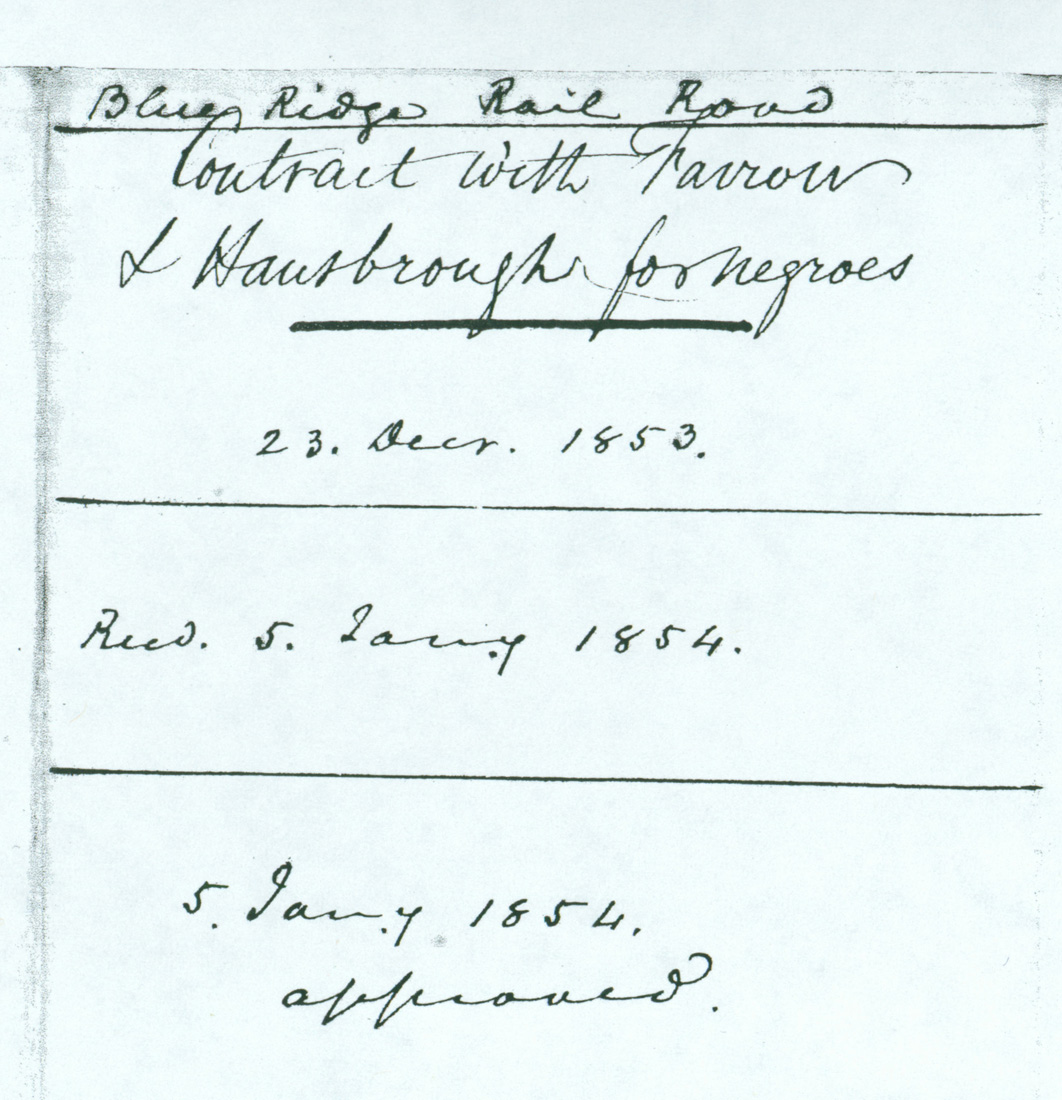 Blue Ridge Rail Road
Contract with Farrow
& Hansbrough for negroes
23. Decr. 1853.
Recd. 5. Jany 1854.
5. Jany 1854.
approved.